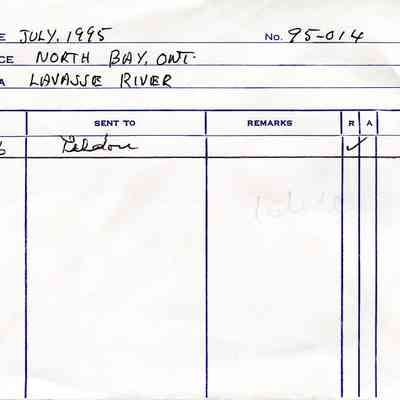 E JULY, 1995 No. 95-014
CE NORTH BAY, ONT.
A LAVASSE RIVER
SENT TO REMARKS R A
6 ✓